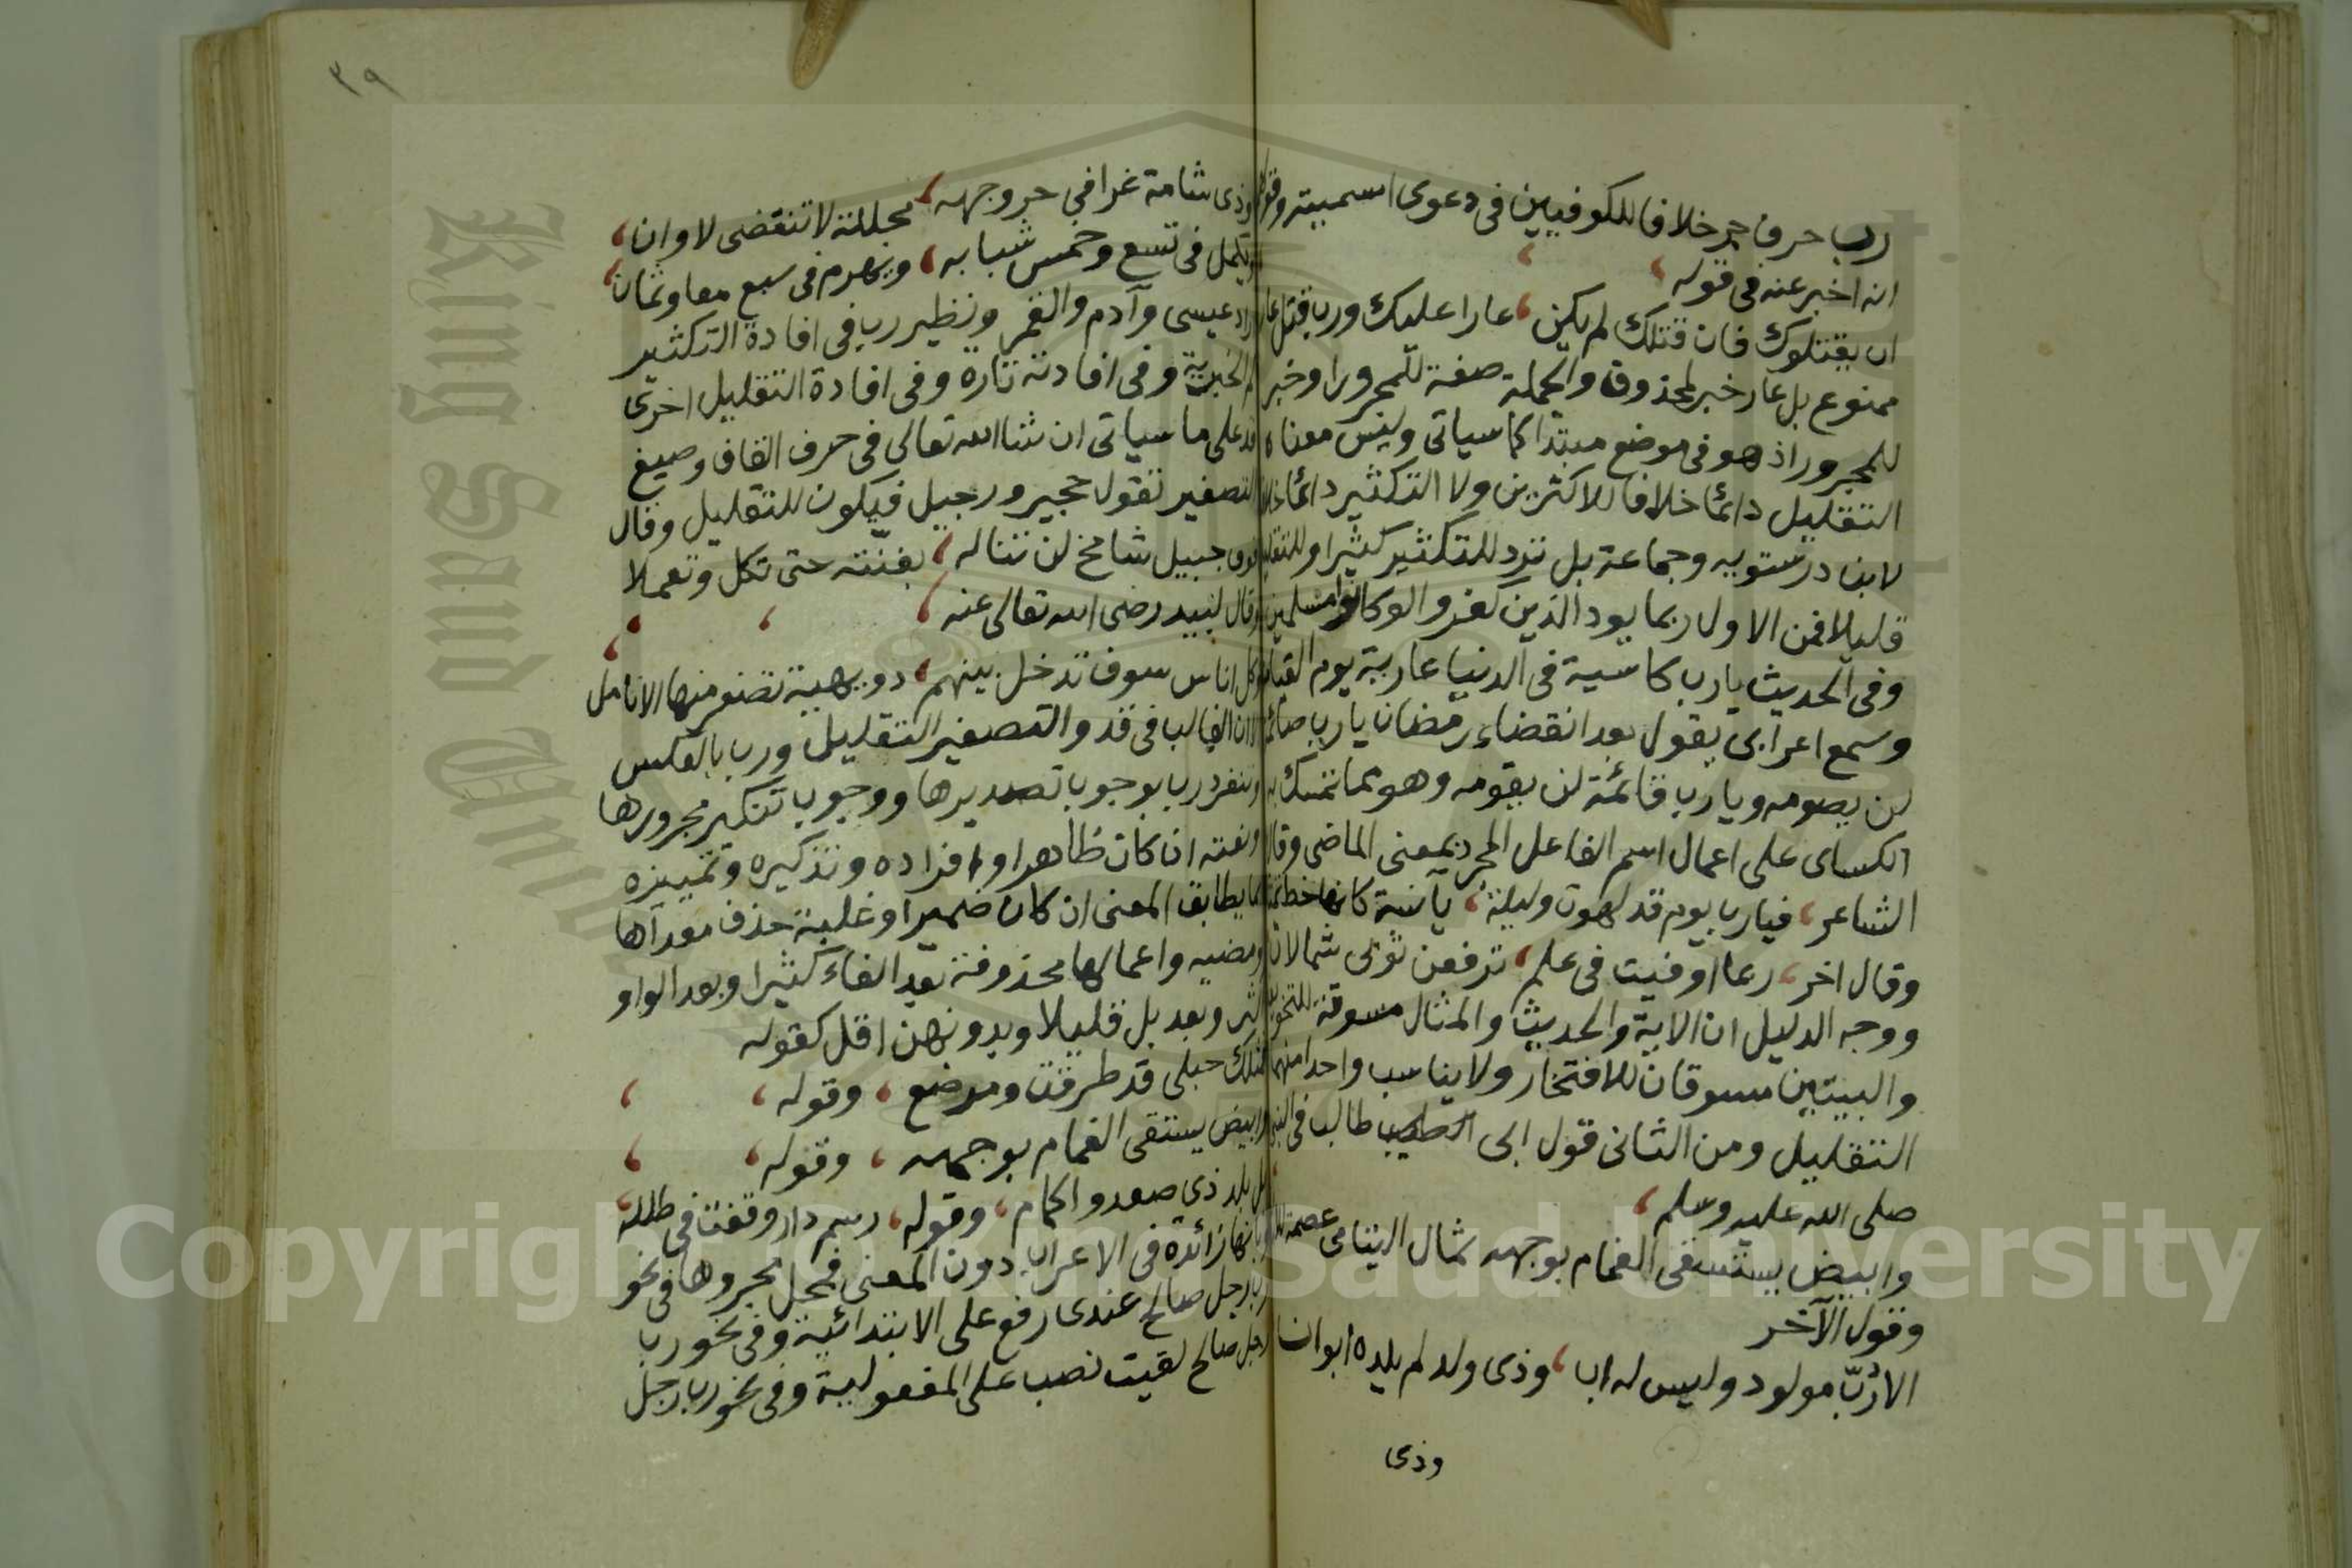 رب حرف جر خلافا للكوفيين في دعوى اسميته وقولهم
انه اخبر عنه في قوله
ان يقتلوك فان قتلك لم يكن، عارا عليك ورب قتل عار
ممنوع بل عار خبر لمحذوف والجملة صفة للمجرور او خبر
للمجرور اذ هو في موضع مبتدا كما سياتي وليس معناه
التقليل دائما خلافا للاكثرين ولا التكثير دائما خلافا
لابن درستويه وجماعة بل ترد للتكثير كثيرا وللتقليل
قليلا فمن الاول ربما يود الذين كفروا لو كانوا مسلمين
وفي الحديث يارب كاسية في الدنيا عارية يوم القيامة
وسمع اعرابي يقول بعد انقضاء رمضان يارب صائمه
لن يصومه ويارب قائمة لن يقومه وهو مما تمسك به
الكساى على اعمال اسم الفاعل المجرد بمعنى الماضي وقال
الشاعر، فيارب يوم قد لهوت وليلة، بآنسة كانها خط تمثال
وقال اخر، ربما اوفيت في علم، ترفعن ثوبي شمالات
ووجه الدليل ان الاية والحديث والمثال مسوقة للتخويف
والبيتين مسوقان للافتخار ولا يناسب واحدا منهما
التقليل ومن الثاني قول ابي طالب في النبي
صلى الله عليه وسلم،
وابيض يستسقى الغمام بوجهه ثمال اليتامى عصمة للارامل
وقول الآخر
الا ربّ مولود وليس له اب، وذي ولد لم يلده ابوان
وذي
٣٩
وذي شامة غرا في حر وجهه، مجللة لا تنقضي لاوان،
ويكمل في تسع وخمس شبابه، ويهرم في سبع معا وثمان،
اراد عيسى وآدم والقمر ونظير رب في افادة التكثير
كم الخبرية وفي افادته تارة وفي افادة التقليل اخرى
قد على ما سياتي ان شا الله تعالى في حرف القاف وصيغ
التصغير تقول حجير ورجيل فيكون للتقليل وقال
فويق جبيل شامخ لن تناله، بقنته حتى تكل وتعملا
وقال لبيد رضي الله تعالى عنه،
وكل اناس سوف تدخل بينهم، دويهية تصفر منها الانامل
الا ان الغالب في قد والتصغير التقليل ورب بالعكس
وتنفرد رب بوجوب تصديرها ووجوب تنكير مجرورها
ونعته ان كان ظاهرا وافراده وتذكيره وتمييزه
بما يطابق المعنى ان كان ضميرا وغلبة حذف معداها
ومضيه واعمالها محذوفة بعد الفاء كثيرا وبعد الواو
اكثر وبعد بل قليلا وبدونهن اقل كقوله
فمثلك حبلى قد طرقت ومرضع، وقوله،
وابيض يستقى الغمام بوجهه، وقوله،
بل بلد ذي صعد واكام، وقوله، رسم دار وقفت في طلله،
وبانها زائدة في الاعراب دون المعنى فمحل مجرورها في نحو
رب رجل صالح عندى رفع على الابتدائية وفي نحو رب
رجل صالح لقيت نصب على المفعولية وفي نحو رب رجل
King Saud University
Copyright © King Saud University